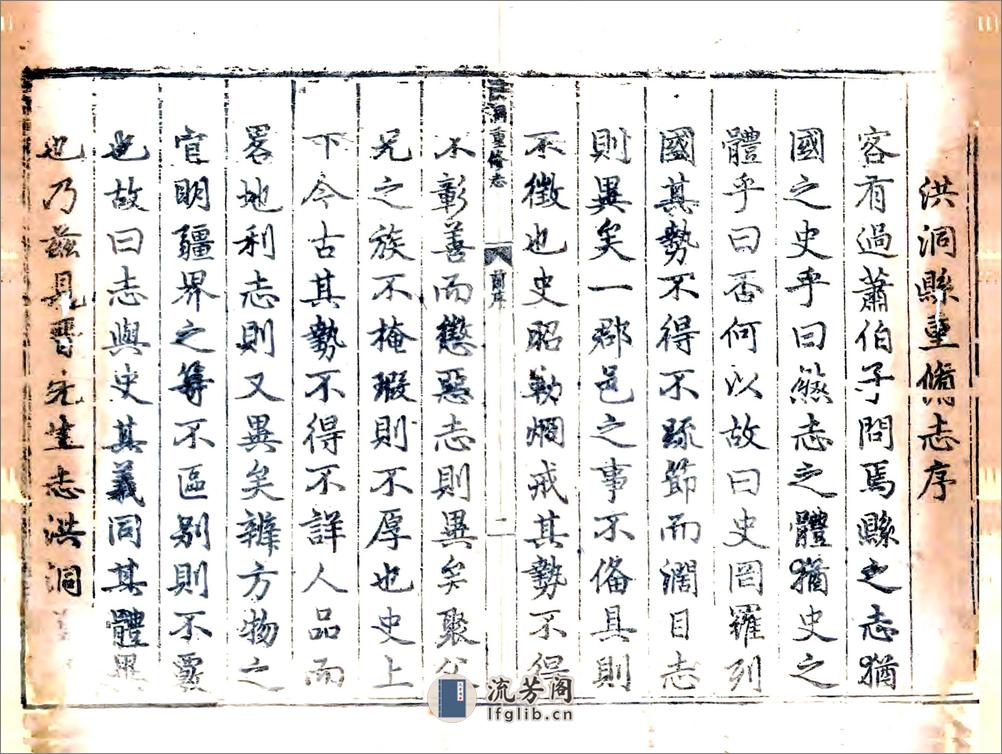 洪洞縣重脩志序
客有過蕭伯子問焉縣之志猶
國之史乎曰然志之體猶史之
體乎曰否何以故曰史罔羅列
國其勢不得不疏節而濶目志
則異矣一郡邑之事不備具則
不徵也史昭勸烱戒其勢不得
洞重修志
前序
二
不彰善而懲惡志則異矣聚父
兄之族不掩瑕則不厚也史上
下今古其勢不得不詳人品而
畧地利志則又異矣辨方物之
官明疆界之等不區别則不覈
也故曰志與史其義同其體異
也乃茲見晋先生志洪洞
流芳阁
lfglib.cn